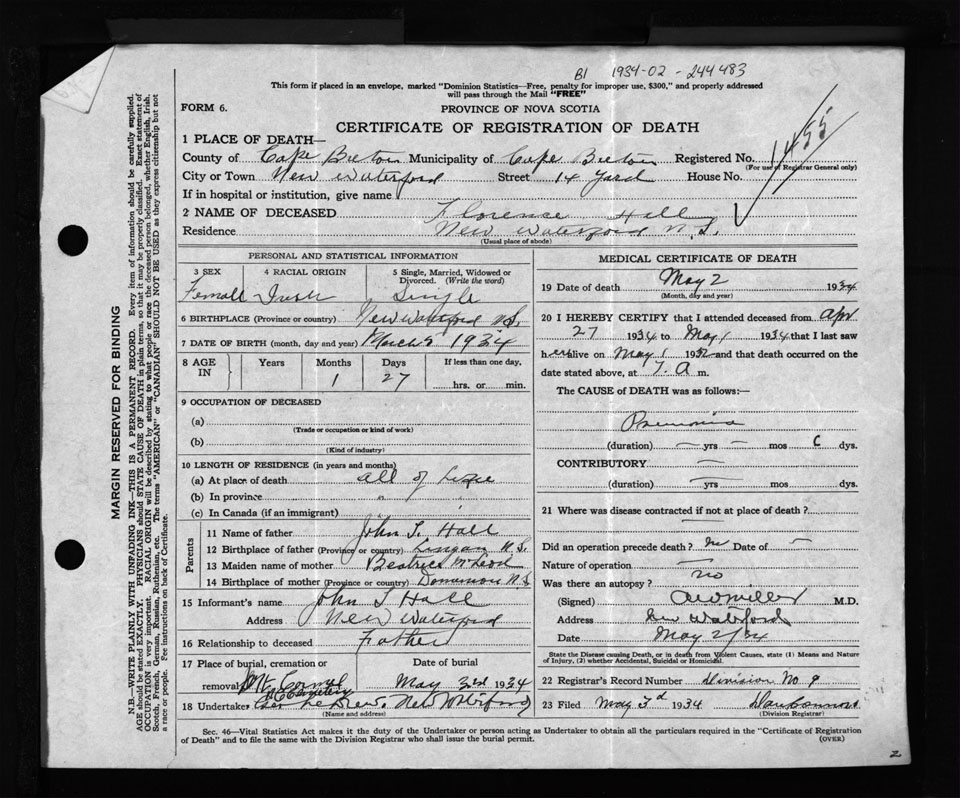 B1 1934-02-244483
This form if placed in an envelope, marked "Dominion Statistics—Free, penalty for improper use, $300," and properly addressed
will pass through the Mail "FREE"
FORM 6.
PROVINCE OF NOVA SCOTIA
CERTIFICATE OF REGISTRATION OF DEATH
1455
1 PLACE OF DEATH—
County of Cape Breton Municipality of Cape Breton Registered No.
(For use of Registrar General only)
City or Town New Waterford Street 14 Yard House No.
If in hospital or institution, give name
2 NAME OF DECEASED Florence Hall
Residence New Waterford N.S.
(Usual place of abode)
PERSONAL AND STATISTICAL INFORMATION
3 SEX 4 RACIAL ORIGIN 5 Single, Married, Widowed or Divorced. (Write the word)
Female Irish Single
6 BIRTHPLACE (Province or country) New Waterford N.S.
7 DATE OF BIRTH (month, day and year) March 5 1934
8 AGE IN Years Months Days If less than one day,
1 27 hrs. or min.
9 OCCUPATION OF DECEASED
(a)
(Trade or occupation or kind of work)
(b)
(Kind of industry)
10 LENGTH OF RESIDENCE (in years and months)
(a) At place of death all of Life
(b) In province "
(c) In Canada (if an immigrant) "
Parents
11 Name of father John T. Hall
12 Birthplace of father (Province or country) Lingan N.S.
13 Maiden name of mother Beatrice McLeod
14 Birthplace of mother (Province or country) Dominion N.S
15 Informant's name John T Hall
Address New Waterford
16 Relationship to deceased Father
17 Place of burial, cremation or Date of burial
removal Mt Carmel May 3rd 1934
Cemetery
18 Undertaker New Waterford
(Name and address)
MEDICAL CERTIFICATE OF DEATH
19 Date of death May 2 1934
(Month, day and year)
20 I HEREBY CERTIFY that I attended deceased from Apr
27 1934 to May 1 1934 that I last saw
her alive on May 1 193 and that death occurred on the
date stated above, at 7. A m.
The CAUSE OF DEATH was as follows:—
Pneumonia
(duration) — yrs — mos dys.
CONTRIBUTORY —
(duration) — yrs mos dys.
21 Where was disease contracted if not at place of death?
—
Did an operation precede death? no Date of —
Nature of operation —
Was there an autopsy? no
(Signed) Miller M.D.
Address New Waterford
Date May 2/34
State the Disease causing Death, or in death from Violent Causes, state (1) Means and Nature
of Injury, (2) whether Accidental, Suicidal or Homicidal.
22 Registrar's Record Number Division No 9
23 Filed May 3rd 1934 Dan Connors
(Division Registrar)
Sec. 46—Vital Statistics Act makes it the duty of the Undertaker or person acting as Undertaker to obtain all the particulars required in the "Certificate of Registration
of Death" and to file the same with the Division Registrar who shall issue the burial permit.
(OVER)
2
MARGIN RESERVED FOR BINDING
N.B.—WRITE PLAINLY WITH UNFADING INK—THIS IS A PERMANENT RECORD. Every item of information should be carefully supplied.
AGE should be stated EXACTLY. PHYSICIANS should STATE CAUSE OF DEATH in plain terms, so that it may be properly classified. Exact statement of
OCCUPATION is very important. RACIAL ORIGIN will be described by stating to what people or race the deceased person belonged, whether English, Irish,
Scotch, French, German, Russian, Ruthenian, etc. The terms "AMERICAN" or "CANADIAN" SHOULD NOT BE USED as they express citizenship but not
a race or people. Fee instructions on back of Certificate.